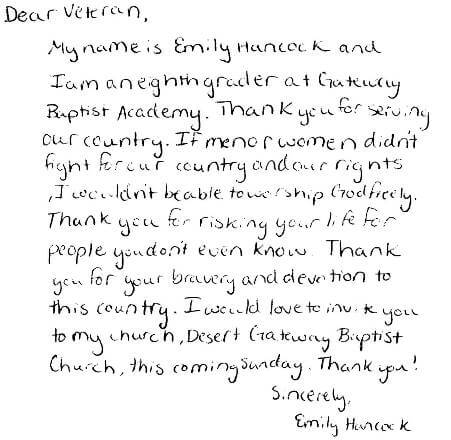 Dear Veteran,
My name is Emily Hancock and
I am an eighth grader at Gateway
Baptist Academy. Thank you for serving
our country. If men or women didn't
fight for our country and our rights
, I wouldn't be able to worship God freely.
Thank you for risking your life for
people you don't even know. Thank
you for your bravery and devotion to
this country. I would love to invite you
to my church, Desert Gateway Baptist
Church, this coming Sunday. Thank you!
Sincerely,
Emily Hancock